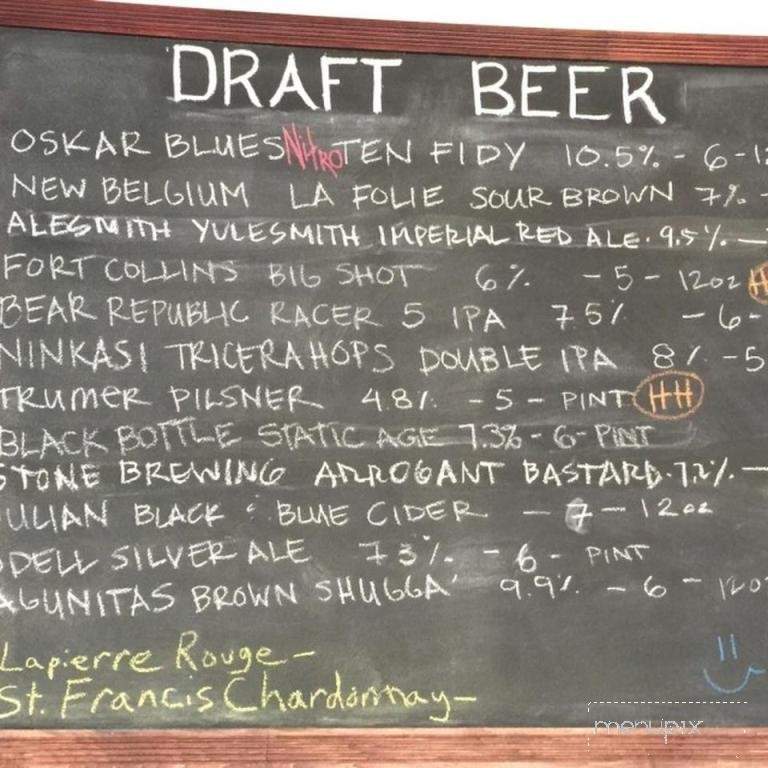 DRAFT BEER
OSKAR BLUES Nitro TEN FIDY 10.5% - 6 - 12
NEW BELGIUM LA FOLIE SOUR BROWN 7% -
ALESMITH YULESMITH IMPERIAL RED ALE. 9.5% —
FORT COLLINS BIG SHOT 6% - 5 - 12oz H
BEAR REPUBLIC RACER 5 IPA 7.5% - 6 -
NINKASI TRICERAHOPS DOUBLE IPA 8% - 5
TRUMER PILSNER 4.8% - 5 - PINT HH
BLACK BOTTLE STATIC AGE 7.3% - 6 - PINT
STONE BREWING ARROGANT BASTARD. 7.2% —
ULIAN BLACK & BLUE CIDER - 7 - 12oz
DELL SILVER ALE 7.3% - 6 - PINT
AGUNITAS BROWN SHUGGA' 9.9% - 6 - 12oz
Lapierre Rouge -
St. Francis Chardonnay -
menupix